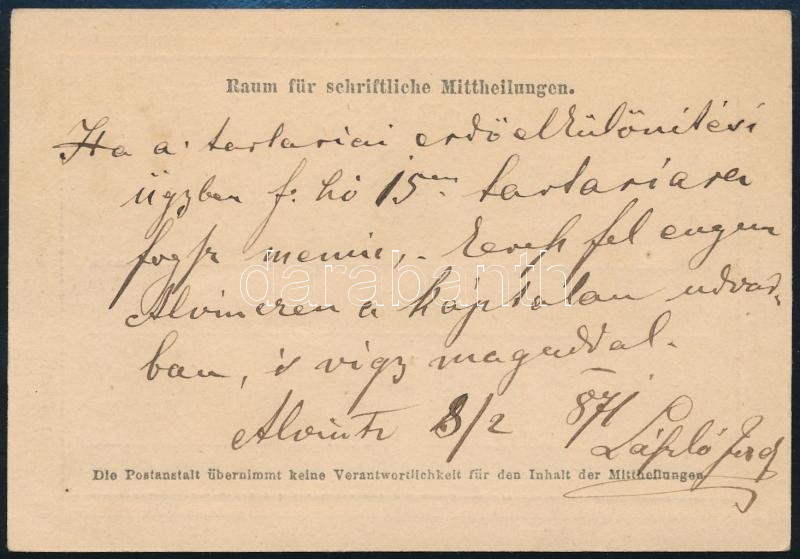 Raum für schriftliche Mittheilungen.
Ha a tartariai erdőelkülönítési
ügyben f. hó 15én tartariara
fogsz menni, . Keress fel engem
Alvinczen a káptalan udvar-
ban, is vigy magaddal.
Alvincz 8/2 871
László
Die Postanstalt übernimmt keine Verantwortlichkeit für den Inhalt der Mittheilungen
darabanth